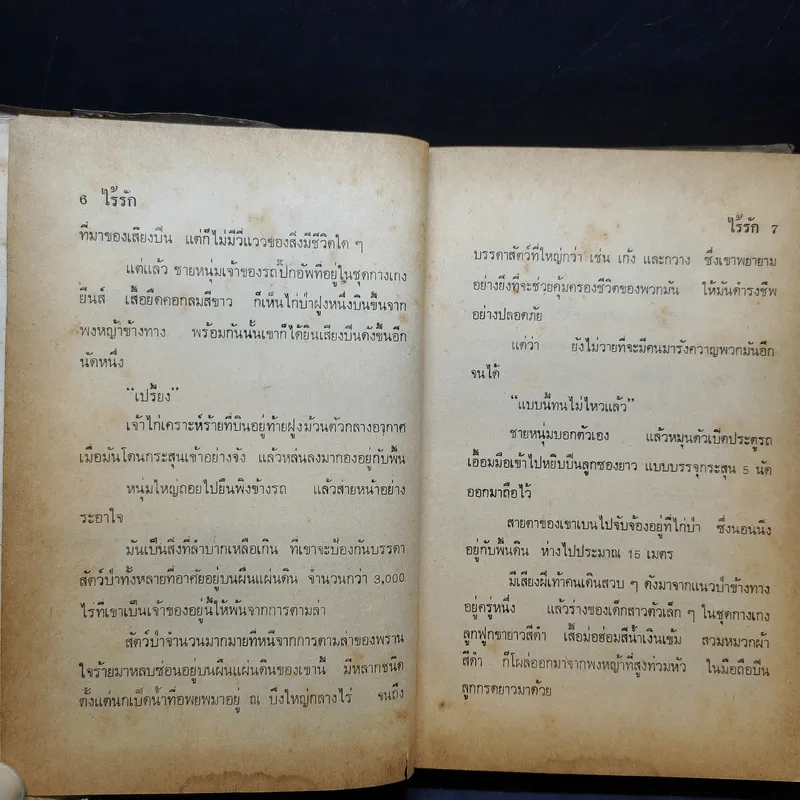 6 ไร้รัก
ที่มาของเสียงปืน แต่ก็ไม่มีวี่แววของสิ่งมีชีวิตใด ๆ
แต่แล้ว ชายหนุ่มเจ้าของรถปิ๊กอัพที่อยู่ในชุดกางเกง
ยีนส์ เสื้อยืดคอกลมสีขาว ก็เห็นไก่ป่าฝูงหนึ่งบินขึ้นจาก
พงหญ้าข้างทาง พร้อมกันนั้นเขาก็ได้ยินเสียงปืนดังขึ้นอีก
นัดหนึ่ง
“เปรี้ยง”
เจ้าไก่เคราะห์ร้ายที่บินอยู่ท้ายฝูงม้วนตัวกลางอากาศ
เมื่อมันโดนกระสุนเข้าอย่างจัง แล้วหล่นลงมากองอยู่กับพื้น
หนุ่มใหญ่ถอยไปยืนพิงข้างรถ แล้วส่ายหน้าอย่าง
ระอาใจ
มันเป็นสิ่งที่ลำบากเหลือเกิน ที่เขาจะป้องกันบรรดา
สัตว์ป่าทั้งหลายที่อาศัยอยู่บนผืนแผ่นดิน จำนวนกว่า 3,000
ไร่ที่เขาเป็นเจ้าของอยู่นี้ให้พ้นจากการตามล่า
สัตว์ป่าจำนวนมากมายที่หนีจากการตามล่าของพราน
ใจร้ายมาหลบซ่อนอยู่บนผืนแผ่นดินของเขานี้ มีหลากชนิด
ตั้งแต่นกเป็ดน้ำที่อพยพมาอยู่ ณ บึงใหญ่กลางไร่ จนถึง
ไร้รัก 7
บรรดาสัตว์ที่ใหญ่กว่า เช่น เก้ง และกวาง ซึ่งเขาพยายาม
อย่างยิ่งที่จะช่วยคุ้มครองชีวิตของพวกมัน ให้มันดำรงชีพ
อย่างปลอดภัย
แต่ว่า ยังไม่วายที่จะมีคนมารังควาญพวกมันอีก
จนได้
“แบบนี้ทนไม่ไหวแล้ว”
ชายหนุ่มบอกตัวเอง แล้วหมุนตัวเปิดประตูรถ
เอื้อมมือเข้าไปหยิบปืนลูกซองยาว แบบบรรจุกระสุน 5 นัด
ออกมาถือไว้
สายตาของเขาเบนไปจับจ้องอยู่ที่ไก่ป่า ซึ่งนอนนิ่ง
อยู่กับพื้นดิน ห่างไปประมาณ 15 เมตร
มีเสียงฝีเท้าคนเดินสวบ ๆ ดังมาจากแนวป่าข้างทาง
อยู่ครู่หนึ่ง แล้วร่างของเด็กสาวตัวเล็ก ๆ ในชุดกางเกง
ลูกฟูกขายาวสีดำ เสื้อม่อฮ่อมสีน้ำเงินเข้ม สวมหมวกผ้า
สีดำ ก็โผล่ออกมาจากพงหญ้าที่สูงท่วมหัว ในมือถือปืน
ลูกกรดยาวมาด้วย